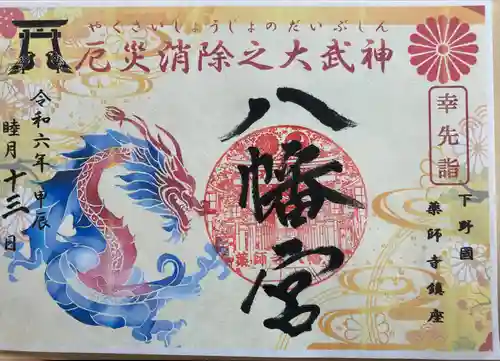 やくさいしょうじょのだいぶしん
厄災消除之大武神
幸先詣
下野國
薬師寺鎮座
八幡宮
令和六年 甲辰
睦月十三日